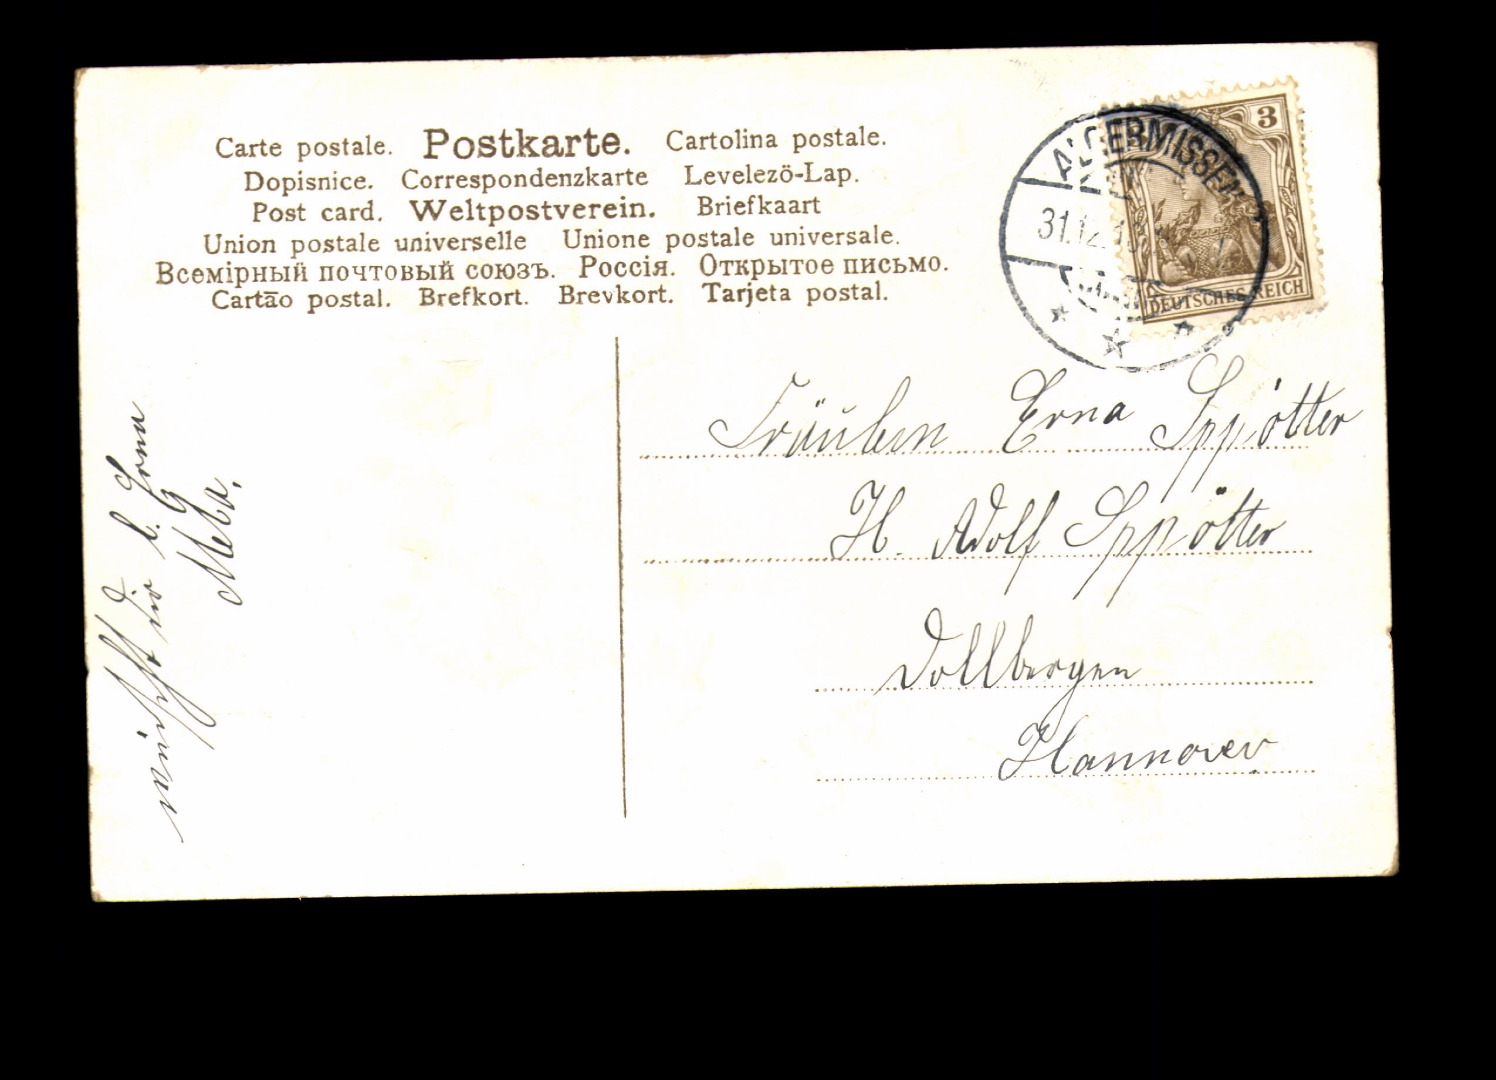 Carte postale. Postkarte. Cartolina postale.
Dopisnice. Correspondenzkarte Levelező-Lap.
Post card. Weltpostverein. Briefkaart
Union postale universelle Unione postale universale.
Всемірный почтовый союзъ. Россія. Открытое письмо.
Cartāo postal. Brefkort. Brevkort. Tarjeta postal.
3
DEUTSCHES REICH
ALGERMISSEN
31.12.
Fräulein Erna Spötter
H. Adolf Spötter
Dollbergen
Hannover
wünscht dir l. Erna
Meta.